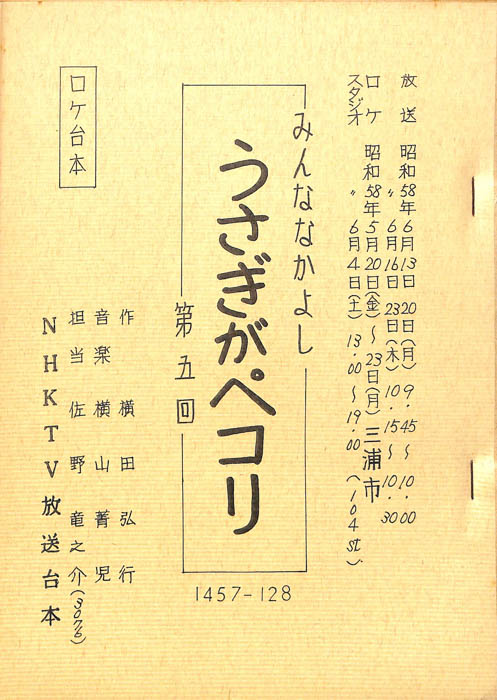 放送 昭和58年6月13日20日(月)9.45～10.00
〃 6月16日23日(木)10.15～10.30
ロケ 昭和58年5月20日(金)～23日(月)三浦市
スタジオ 〃 6月4日(土)13.00～19.00(104st)
みんななかよし
うさぎがペコリ
第五回
1457-128
ロケ台本
作 横田弘行
音楽 横山菁児
担当 佐野竜之介(3076)
NHKTV放送台本